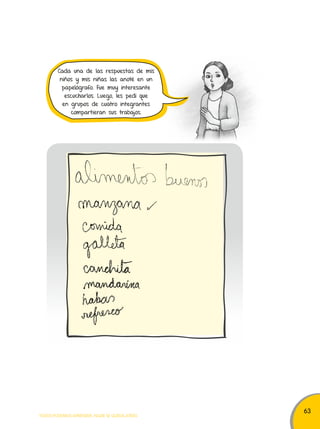 Cada una de las respuestas de mis
niños y mis niñas las anoté en un
papelógrafo. Fue muy interesante
escucharlos. Luego, les pedí que
en grupos de cuatro integrantes
compartieran sus trabajos.
alimentos buenos
manzana ✓
comida
galleta
canchita
mandarina
habas
refresco
63